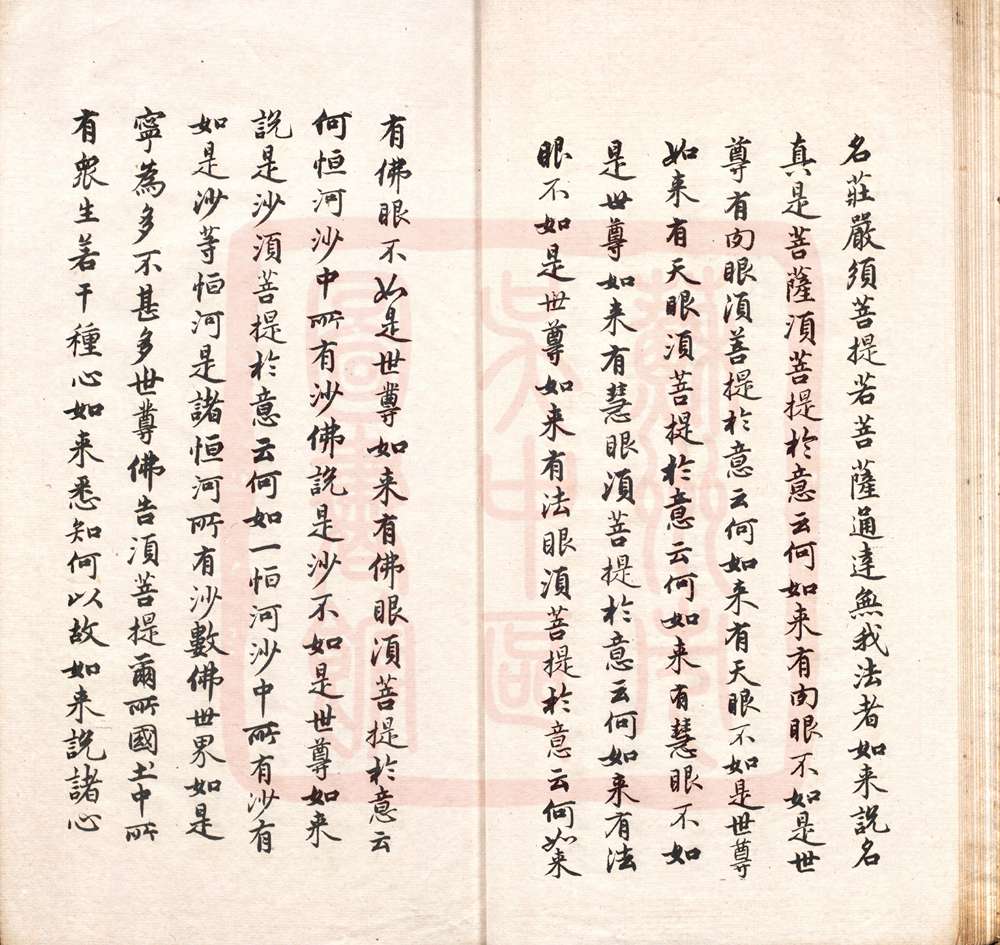 名莊嚴須菩提若菩薩通達無我法者如来説名
真是菩薩須菩提於意云何如来有肉眼不如是世
尊有肉眼須菩提於意云何如来有天眼不如是世尊
如来有天眼須菩提於意云何如来有慧眼不如
是世尊如来有慧眼須菩提於意云何如来有法
眼不如是世尊如来有法眼須菩提於意云何如来
有佛眼不如是世尊如来有佛眼須菩提於意云
何恒河沙中所有沙佛説是沙不如是世尊如来
説是沙須菩提於意云何如一恒河沙中所有沙有
如是沙等恒河是諸恒河所有沙數佛世界如是
寧為多不甚多世尊佛告須菩提爾所國土中所
有衆生若干種心如来悉知何以故如来説諸心
蘇州市
吳中區
圖書館